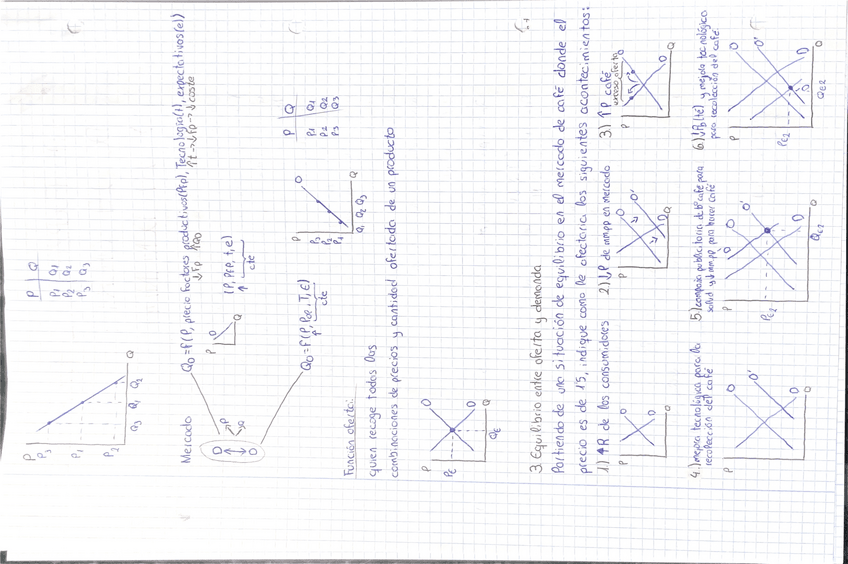 P Q
P₁ Q₁
P₂ Q₂
P₃ Q₃
P
P₃
P₁
P₂
Q₃ Q₁ Q₂ Q
Mercado
QO = f(P, precio factores productivos(Pfp), Tecnología(t), expectativas(e))
↓fp ↑QO
↑t → ↓fp → ↓coste
(P, Pfp, t, e)
cte
P
O
Q
O
D
P
Q
QD = f(P, T, E)
cte
Función oferta:
quien recoge todas las
combinaciones de precios y cantidad ofertada de un producto
P Q
P₁ Q₁
P₂ Q₂
P₃ Q₃
P
O
Q₁ Q₂ Q₃
Q
P
PE
O
D
QE
Q
3. Equilibrio entre oferta y demanda
Partiendo de una situación de equilibrio en el mercado de café donde el
precio es de 15, indique como le afectaría los siguientes acontecimientos:
1) ↑R de los consumidores
P
O
D
Q
2) ↓P de mmpp en mercado
P
O
O'
D
Q
3) ↑P café
exceso oferta
P
O
D
Q
4) mejora tecnológica para la
recolección del café
P
O
O'
D
Q
5) campaña publicitaria de bº café para
salud y ↓mmpp para hacer café
P
O
O'
D
PE2
QE2
Q
6) ↓P(té) y mejora tecnológica
para recolección del café
P
O
O'
D
PE2
QE2
Q